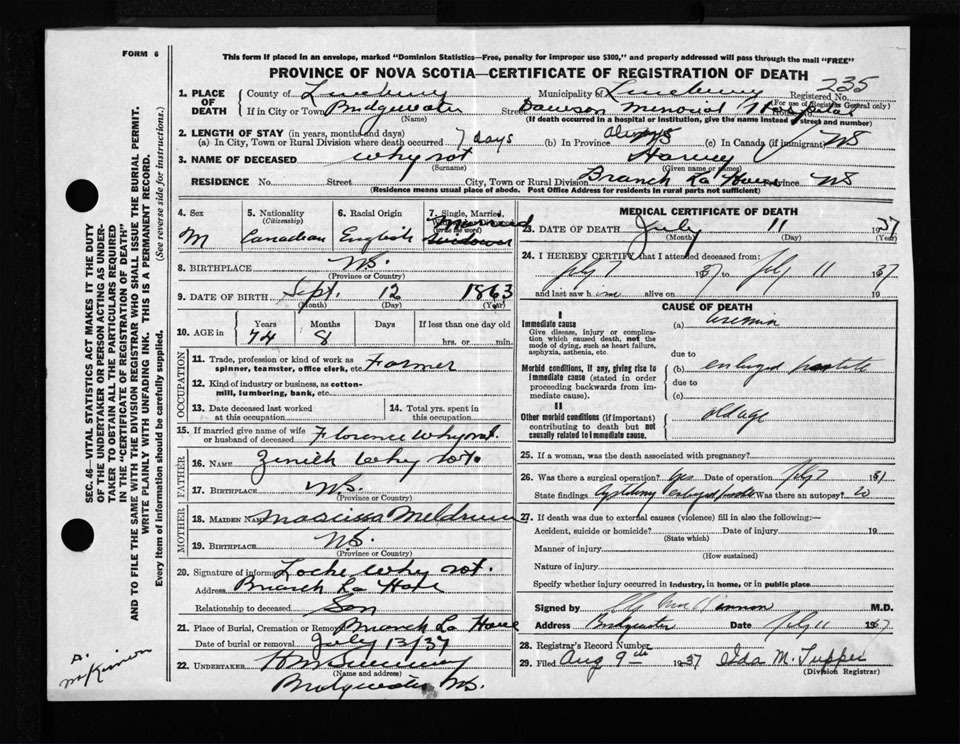 FORM 6
This form if placed in an envelope, marked "Dominion Statistics—Free, penalty for improper use $300," and properly addressed will pass through the mail "FREE"
PROVINCE OF NOVA SCOTIA—CERTIFICATE OF REGISTRATION OF DEATH
235
1. PLACE OF DEATH County of Lunenburg Municipality of Lunenburg Registered No.
(For use of Registrar General only)
If in City or Town Bridgewater Street Dawson Memorial Hospital
(Name) (If death occurred in a hospital or institution, give the name instead of street and number)
2. LENGTH OF STAY (in years, months and days)
(a) In City, Town or Rural Division where death occurred 7 days (b) In Province always (c) In Canada (if immigrant) NS
3. NAME OF DECEASED Whynot Harvey
(Surname) (Given name or names)
RESIDENCE No. Street City, Town or Rural Division Branch La Have Province NS
(Residence means usual place of abode. Post Office Address for residents in rural parts not sufficient)
4. Sex M
5. Nationality (Citizenship) Canadian
6. Racial Origin English
7. Single, Married, (write the word) Married Widower
8. BIRTHPLACE N.S.
(Province or Country)
9. DATE OF BIRTH Sept. 12 1863
(Month) (Day) (Year)
10. AGE in Years Months Days If less than one day old
74 8 hrs. or min.
OCCUPATION
11. Trade, profession or kind of work as spinner, teamster, office clerk, etc. Farmer
12. Kind of industry or business, as cotton-mill, lumbering, bank, etc.
13. Date deceased last worked at this occupation
14. Total yrs. spent in this occupation
15. If married give name of wife or husband of deceased Florence Whynot.
FATHER
16. NAME Zenith Whynot.
17. BIRTHPLACE N.S.
(Province or Country)
MOTHER
18. MAIDEN NAME Narcissa Meldrum
19. BIRTHPLACE N.S.
(Province or Country)
20. Signature of informant Locke Whynot.
Address Branch La Have
Relationship to deceased Son
21. Place of Burial, Cremation or Removal Branch La Have
Date of burial or removal July 13/37
22. UNDERTAKER
(Name and address)
Bridgewater NS.
MEDICAL CERTIFICATE OF DEATH
23. DATE OF DEATH July 11 1937
(Month) (Day) (Year)
24. I HEREBY CERTIFY that I attended deceased from:
July 7 1937 to July 11 1937
and last saw him alive on 19
CAUSE OF DEATH
I
Immediate cause
Give disease, injury or complication which caused death, not the mode of dying, such as heart failure, asphyxia, asthenia, etc.
(a) Uremia
due to
Morbid conditions, if any, giving rise to immediate cause (stated in order proceeding backwards from immediate cause).
(b) enlarged prostate
due to
(c)
II
Other morbid conditions (if important) contributing to death but not causally related to immediate cause.
old age
25. If a woman, was the death associated with pregnancy?
26. Was there a surgical operation? yes Date of operation July 7 1937
State findings enlarged prostate Was there an autopsy? no
27. If death was due to external causes (violence) fill in also the following:—
Accident, suicide or homicide? Date of injury 19
(State which)
Manner of injury
(How sustained)
Nature of injury
Specify whether injury occurred in industry, in home, or in public place
Signed by M.D.
Address Bridgewater Date July 11 1937
28. Registrar's Record Number
29. Filed Aug 9th 1937 Ida M. Tupper
(Division Registrar)
SEC. 46—VITAL STATISTICS ACT MAKES IT THE DUTY
OF THE UNDERTAKER OR PERSON ACTING AS UNDER-
TAKER TO OBTAIN ALL THE PARTICULARS REQUIRED
IN THE "CERTIFICATE OF REGISTRATION OF DEATH"
AND TO FILE THE SAME WITH THE DIVISION REGISTRAR WHO SHALL ISSUE THE BURIAL PERMIT.
WRITE PLAINLY WITH UNFADING INK. THIS IS A PERMANENT RECORD.
Every item of information should be carefully supplied. (See reverse side for instructions.)